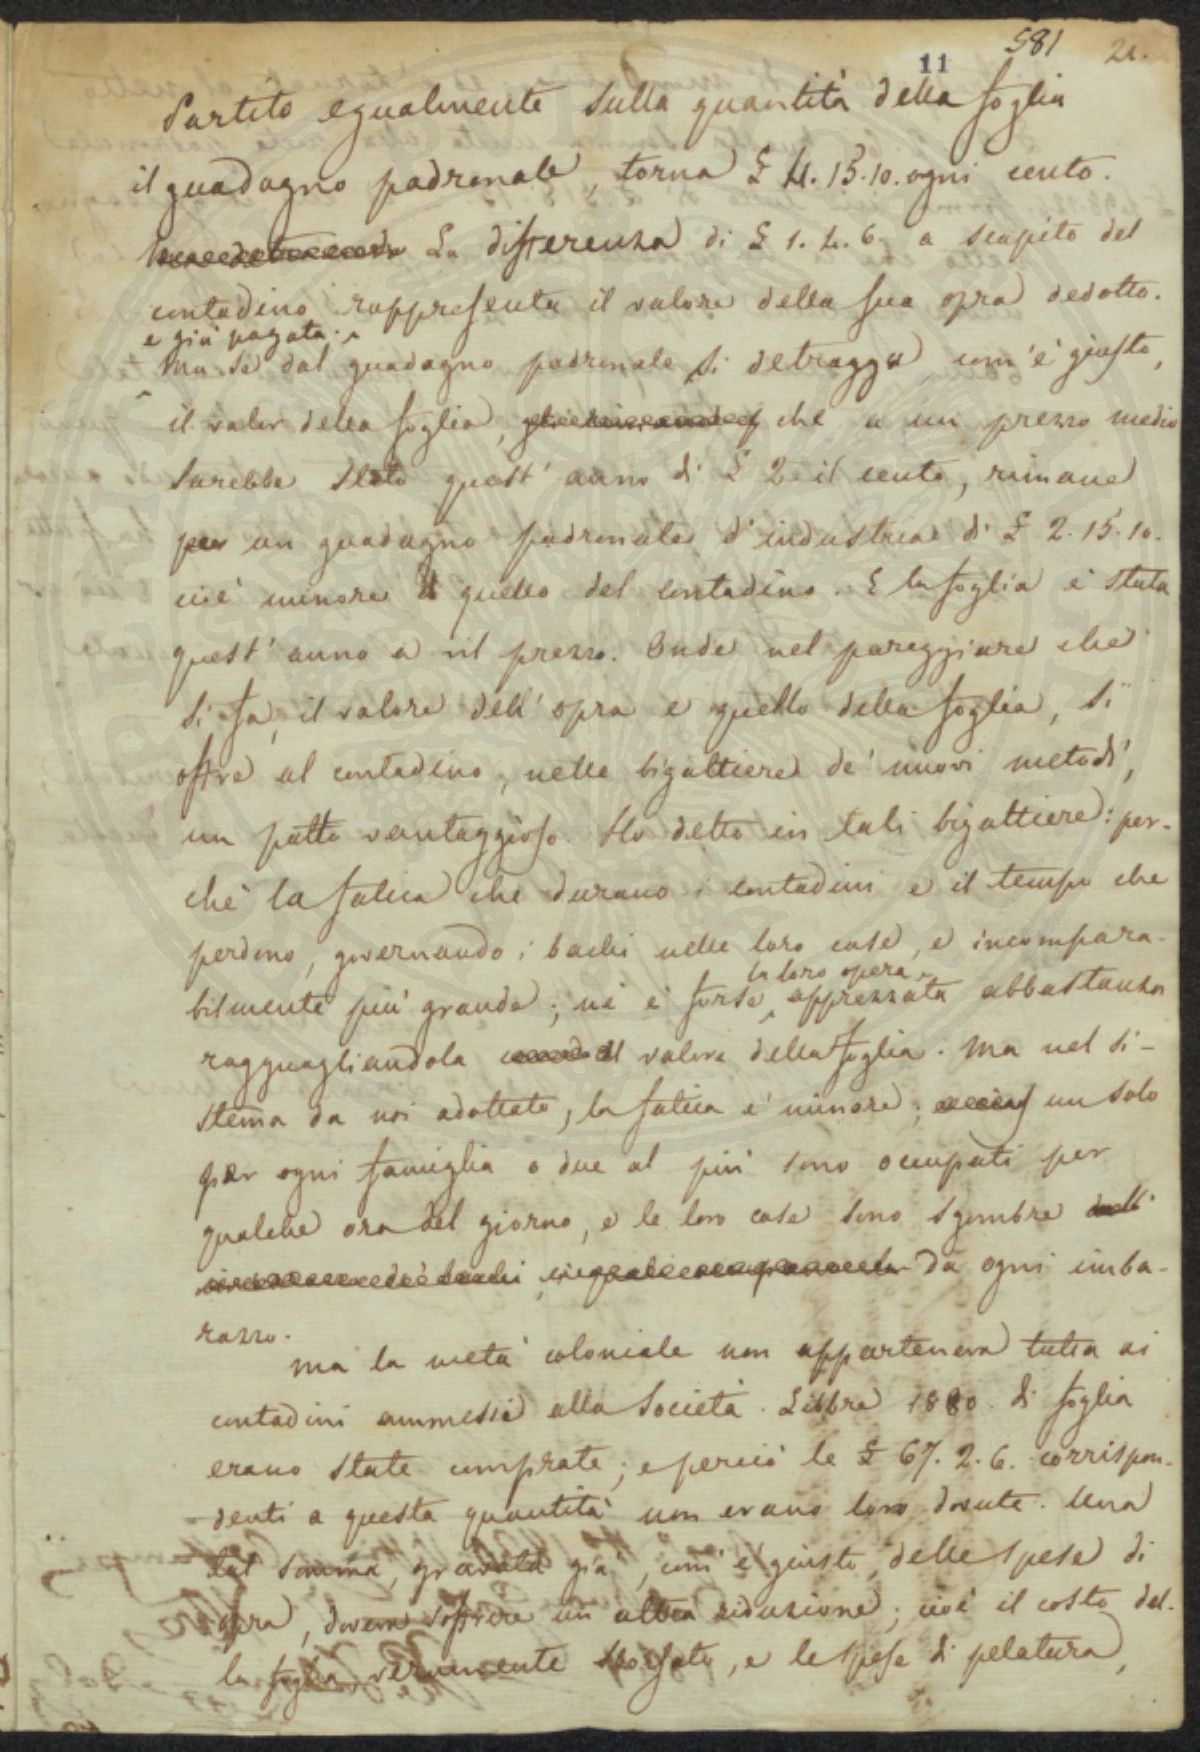 581
11
21.
Partito egualmente sulla quantità della foglia
il guadagno padronale, torna £ 4. 15. 10. ogni cento.
La differenza di £ 1. 4. 6 a scapito del
contadino rappresenta il valore della sua opra dedotto.
e già pagata.
Ma se dal guadagno padronale si detragga, com'è giusto,
il valor della foglia, che a un prezzo medio
sarebbe stato quest' anno di £ 2 il cento, rimane
un guadagno padronale d'industria di £ 2. 15. 10.
cioè minore di quello del contadino. E la foglia è stata
quest' anno a vil prezzo. Onde nel pareggiare che
si fa, il valore dell' opra e quello della foglia, si
offre al contadino, nelle bigattiere de' nuovi metodi,
un patto vantaggioso. Ho detto in tali bigattiere: per-
chè la fatica che durano i contadini e il tempo che
perdono, governando i bachi nelle loro case, è incompara-
bilmente più grande; nè è forse apprezzata abbastanza
la loro opera
ragguagliandola al valore della foglia. Ma nel si-
stema da noi adottato, la fatica è minore; un solo
per ogni famiglia o due al più sono occupati per
qualche ora del giorno, e le loro case sono sgombre
da ogni imba-
razzo.
Ma la metà coloniale non apparteneva tutta ai
contadini ammessi alla Società. Libbre 1880 di foglia
erano state comprate; e perciò le £ 67. 2. 6. corrispon-
denti a questa quantità non erano loro dovute. Una
tal somma, gravata già, com' è giusto, delle spese di
opra, doveva soffrire un altra riduzione; cioè il costo del-
la foglia veramente sborsato, e le spese di pelatura,